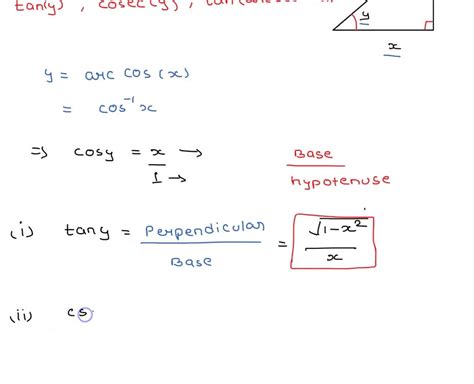 tan(y), cosec(y),
y
x
y = arc cos (x)
= cos⁻¹x
⇒ cosy = x/1 → → Base/hypotenuse
(i) tany = Perpendicular/Base = √1-x²/x
(ii) cs